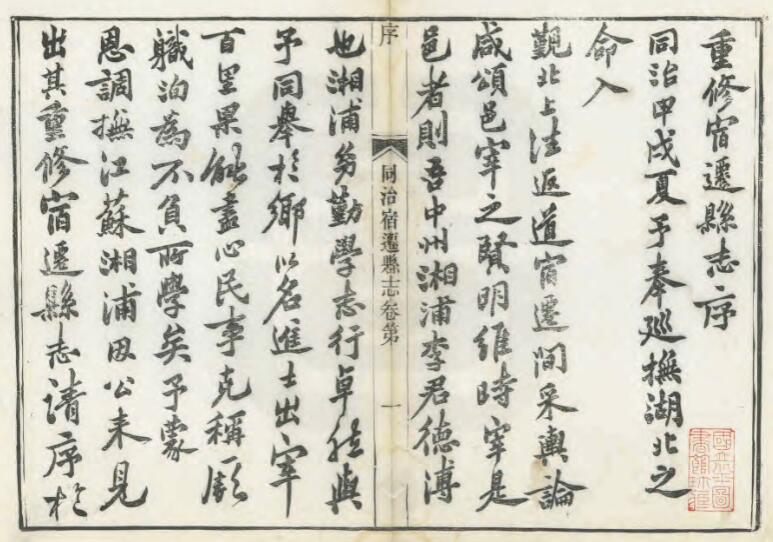 重修宿遷縣志序
同治甲戌夏予奉巡撫湖北之
命入
覲北上往返道宿遷間采輿論
咸頌邑宰之賢明維時宰是
邑者則吾中州湘浦李君德溥
序
同治宿遷縣志卷第
一
也湘浦夯勤學志行卓犖與
予同舉於鄉以名進士出宰
百里果能盡心民事克稱厥
職洵為不負所學矣予蒙
恩調撫江蘇湘浦因公來見
出其重修宿遷縣志請序於